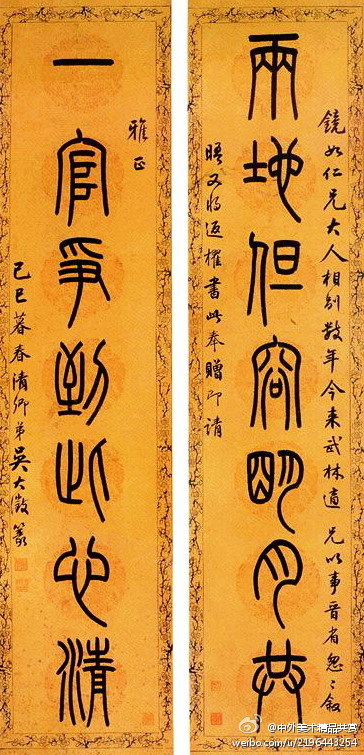 兩地但容明月共
一官爭到此心清
鏡如仁兄大人相別數年今來武林適 兄以事晉省怱〻敘
晤又將返櫂書此奉贈即請
雅正
己巳暮春清卿弟吳大澂篆
@中外美术精品共赏